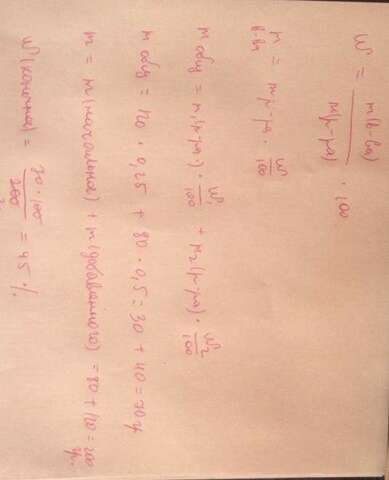 W = m(в-ва) / m(р-ра) · 100
m в-ва = m р-ра · W / 100
m общ = m₁(р-ра) · W₁ / 100 + m₂(р-ра) · W₂ / 100
m общ = 120 · 0,25 + 80 · 0,5 = 30 + 40 = 70 г
m = m(начальная) + m(добавленного) = 80 + 120 = 200 гр.
W(конечная) = 70 · 100 / 200 = 45 %